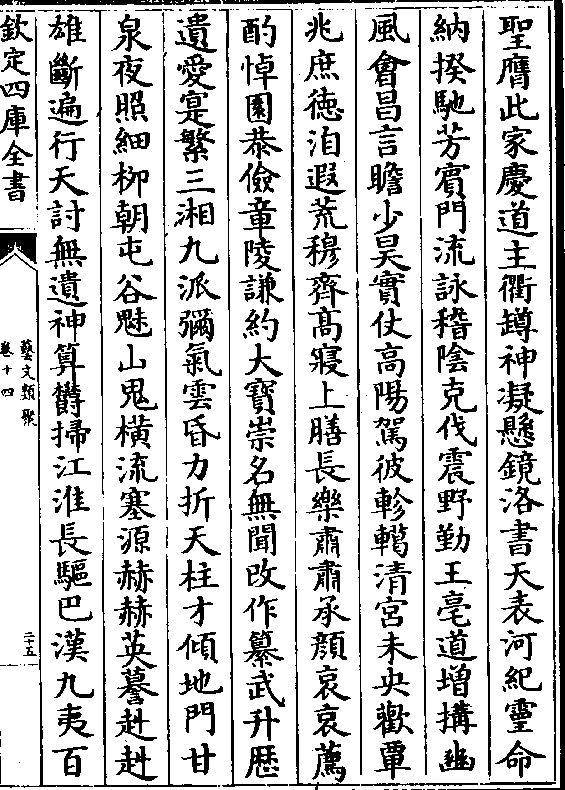 聖膺此家慶道主衢罇神凝懸鏡洛書天表河紀靈命
納揆馳芳賔門流詠稽陰克伐震野勤王亳道増搆豳
風㑹昌言瞻少昊實仗高陽駕彼軫轕清宮未央歡單
兆庶徳洎遐荒穆齊髙寢上膳長樂肅肅承顔哀哀薦
酌悼園恭儉章陵謙約大寶崇名無聞改作纂武升歴
遺愛寔繁三湘九派彌氣雲昏力折天柱才傾地門甘
泉夜照細栁朝屯谷魅山鬼横流塞源赫赫英謩赳赳
雄斷遍行天討無遺神算欝掃江淮長驅巴漢九夷百
欽定四庫全書
藝文類聚
卷十四
二十五